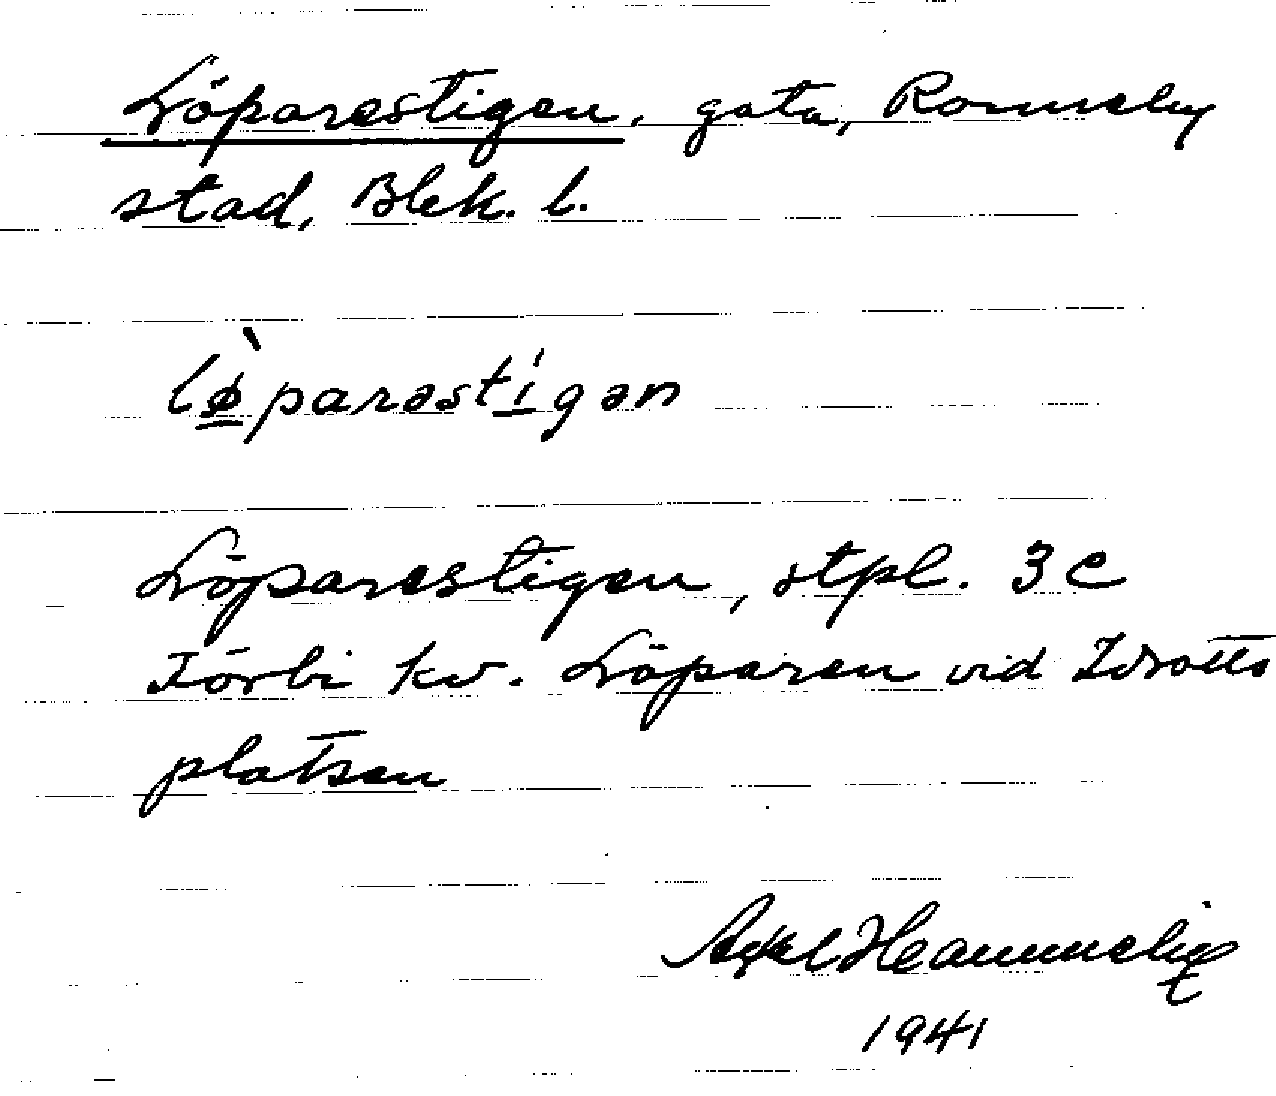 Löparestigen, gata, Ronneby
stad, Blek. l.
lø̀parəstígən
Löparestigen, stpl. 3 C
Förbi kv. Löparen vid Idrotts
platsen
Axel
1941